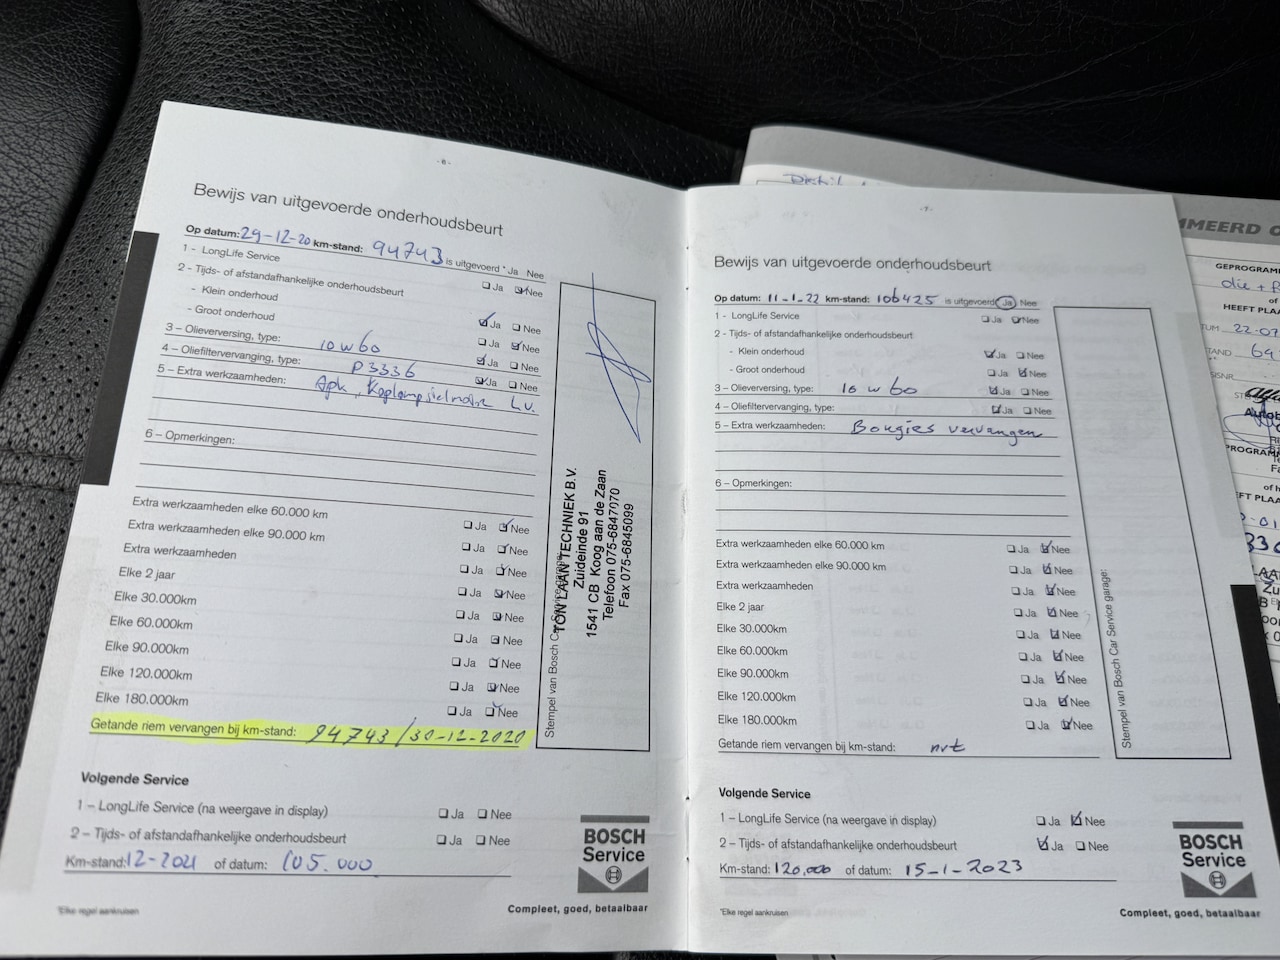 - 6 -
Bewijs van uitgevoerde onderhoudsbeurt
Op datum: 29-12-20 km-stand: 94743 is uitgevoerd * Ja Nee
1 - LongLife Service Ja Nee
2 - Tijds- of afstandafhankelijke onderhoudsbeurt
- Klein onderhoud Ja Nee
- Groot onderhoud Ja Nee
3 – Olieverversing, type: 10 w 60 Ja Nee
4 – Oliefiltervervanging, type: P3336 Ja Nee
5 – Extra werkzaamheden: Apk, Koplampstelmotor L.V.
6 – Opmerkingen:
Extra werkzaamheden elke 60.000 km Ja Nee
Extra werkzaamheden elke 90.000 km Ja Nee
Extra werkzaamheden Ja Nee
Elke 2 jaar Ja Nee
Elke 30.000km Ja Nee
Elke 60.000km Ja Nee
Elke 90.000km Ja Nee
Elke 120.000km Ja Nee
Elke 180.000km Ja Nee
Getande riem vervangen bij km-stand: 94743 / 30-12-2020
Stempel van Bosch Car Service garage:
TON LAAN TECHNIEK B.V.
Zuideinde 91
1541 CB Koog aan de Zaan
Telefoon 075-6847070
Fax 075-6845099
Volgende Service
1 – LongLife Service (na weergave in display) Ja Nee
2 – Tijds- of afstandafhankelijke onderhoudsbeurt Ja Nee
Km-stand: 12-2021 of datum: 105.000
*Elke regel aankruisen
BOSCH
Service
Compleet, goed, betaalbaar
- 7 -
Bewijs van uitgevoerde onderhoudsbeurt
Op datum: 11-1-22 km-stand: 106425 is uitgevoerd Ja Nee
1 - LongLife Service Ja Nee
2 - Tijds- of afstandafhankelijke onderhoudsbeurt
- Klein onderhoud Ja Nee
- Groot onderhoud Ja Nee
3 – Olieverversing, type: 10 w 60 Ja Nee
4 – Oliefiltervervanging, type: Ja Nee
5 – Extra werkzaamheden: Bougies vervangen
6 – Opmerkingen:
Extra werkzaamheden elke 60.000 km Ja Nee
Extra werkzaamheden elke 90.000 km Ja Nee
Extra werkzaamheden Ja Nee
Elke 2 jaar Ja Nee
Elke 30.000km Ja Nee
Elke 60.000km Ja Nee
Elke 90.000km Ja Nee
Elke 120.000km Ja Nee
Elke 180.000km Ja Nee
Getande riem vervangen bij km-stand: nvt
Stempel van Bosch Car Service garage:
Volgende Service
1 – LongLife Service (na weergave in display) Ja Nee
2 – Tijds- of afstandafhankelijke onderhoudsbeurt Ja Nee
Km-stand: 120.000 of datum: 15-1-2023
*Elke regel aankruisen
BOSCH
Service
Compleet, goed, betaalbaar
MMEERD O
GEPROGRAMM
of
HEEFT PLAA
22-07